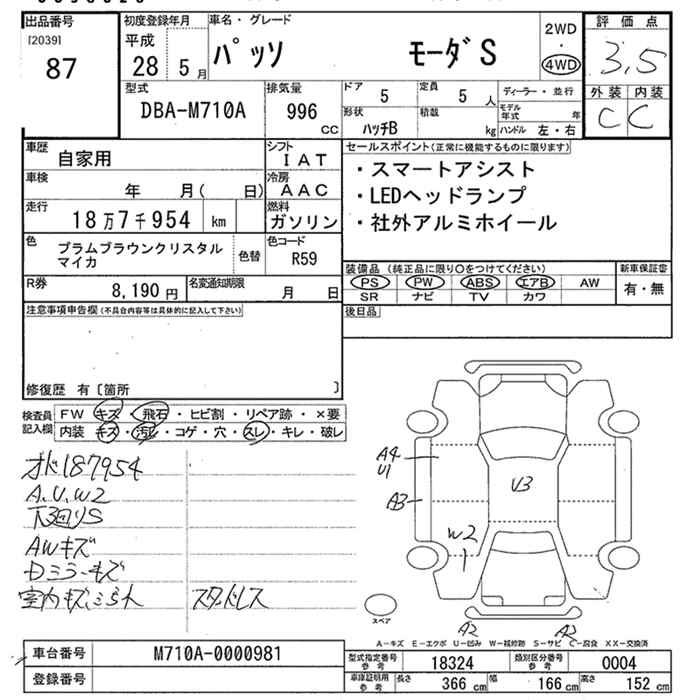 出品番号 初度登録年月 車名・グレード
[2039]
87
平成
28 5月
パッソ モーダS
2WD
・
4WD
評価点
3.5
外装 内装
C C
型式
DBA-M710A
排気量
996
cc
ドア 5
定員 5人
ディーラー・並行
形状
ハッチB
積載
kg
モデル年式 年
ハンドル 左・右
車歴
自家用
シフト
IAT
車検
年 月( 日)
冷房
AAC
走行
18万7千954 km
燃料
ガソリン
色
プラムブラウンクリスタル
マイカ
色替
色コード
R59
R券
8,190円
名変通知期限
月 日
セールスポイント(正常に機能するものに限ります)
・スマートアシスト
・LEDヘッドランプ
・社外アルミホイール
装備品(純正品に限り○をつけてください)
新車保証書
PS PW ABS エアB AW
SR ナビ TV カワ
有・無
後日品
注意事項申告欄(不具合内容等は具体的に記入して下さい)
修復歴 有〔箇所 〕
検査員
記入欄
FW キズ・飛石・ヒビ割・リペア跡・×要
内装 キズ・汚レ・コゲ・穴・スレ・キレ・破レ
オド187954
A.U.W2
下廻りS
AWキズ
Dミラーキズ
室内キズ、ミラ スタッドレス
A4
U1
A3
U3
W2
A2 A2
スペア
A-キズ E-エクボ U-凹み W-補修跡 S-サビ C-腐食 XX-交換済
車台番号
M710A-0000981
登録番号
型式指定番号
参考
18324
類別区分番号
参考
0004
車庫証明用
参考
長さ 366cm
幅 166cm
高さ 152cm